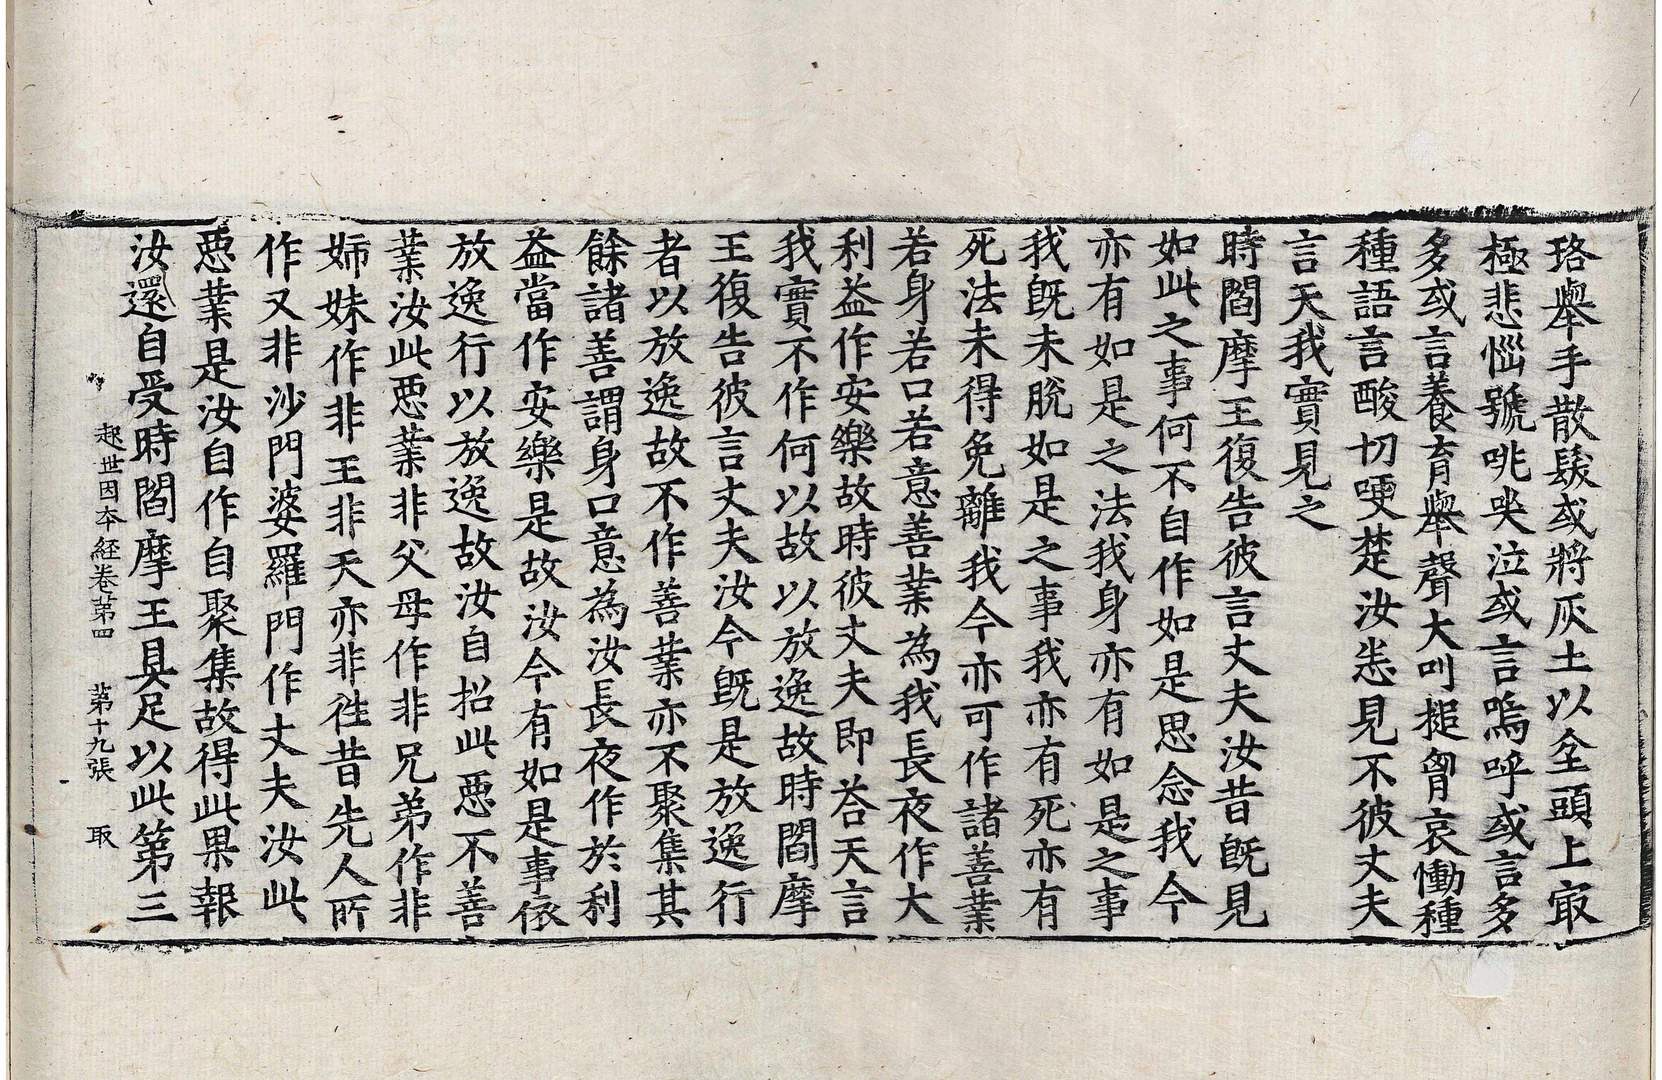 珞舉手散髮或將灰土以坌頭上㝡
極悲惱號咷哭泣或言嗚呼或言多
多或言養育舉聲大叫搥胷哀慟種
種語言酸切哽楚汝悉見不彼丈夫
言天我實見之
時閻摩王復告彼言丈夫汝昔旣見
如此之事何不自作如是思念我今
亦有如是之法我身亦有如是之事
我旣未脫如是之事我亦有死亦有
死法未得免離我今亦可作諸善業
若身若口若意善業為我長夜作大
利益作安樂故時彼丈夫即荅天言
我實不作何以故以放逸故時閻摩
王復告彼言丈夫汝今旣是放逸行
者以放逸故不作善業亦不聚集其
餘諸善謂身口意為汝長夜作於利
益當作安樂是故汝今有如是事依
放逸行以放逸故汝自招此惡不善
業汝此惡業非父母作非兄弟作非
姉妹作非王非天亦非徃昔先人所
作又非沙門婆羅門作丈夫汝此
惡業是汝自作自聚集故得此果報
汝還自受時閻摩王具足以此第三
起世因本經卷第四 第十九張 取